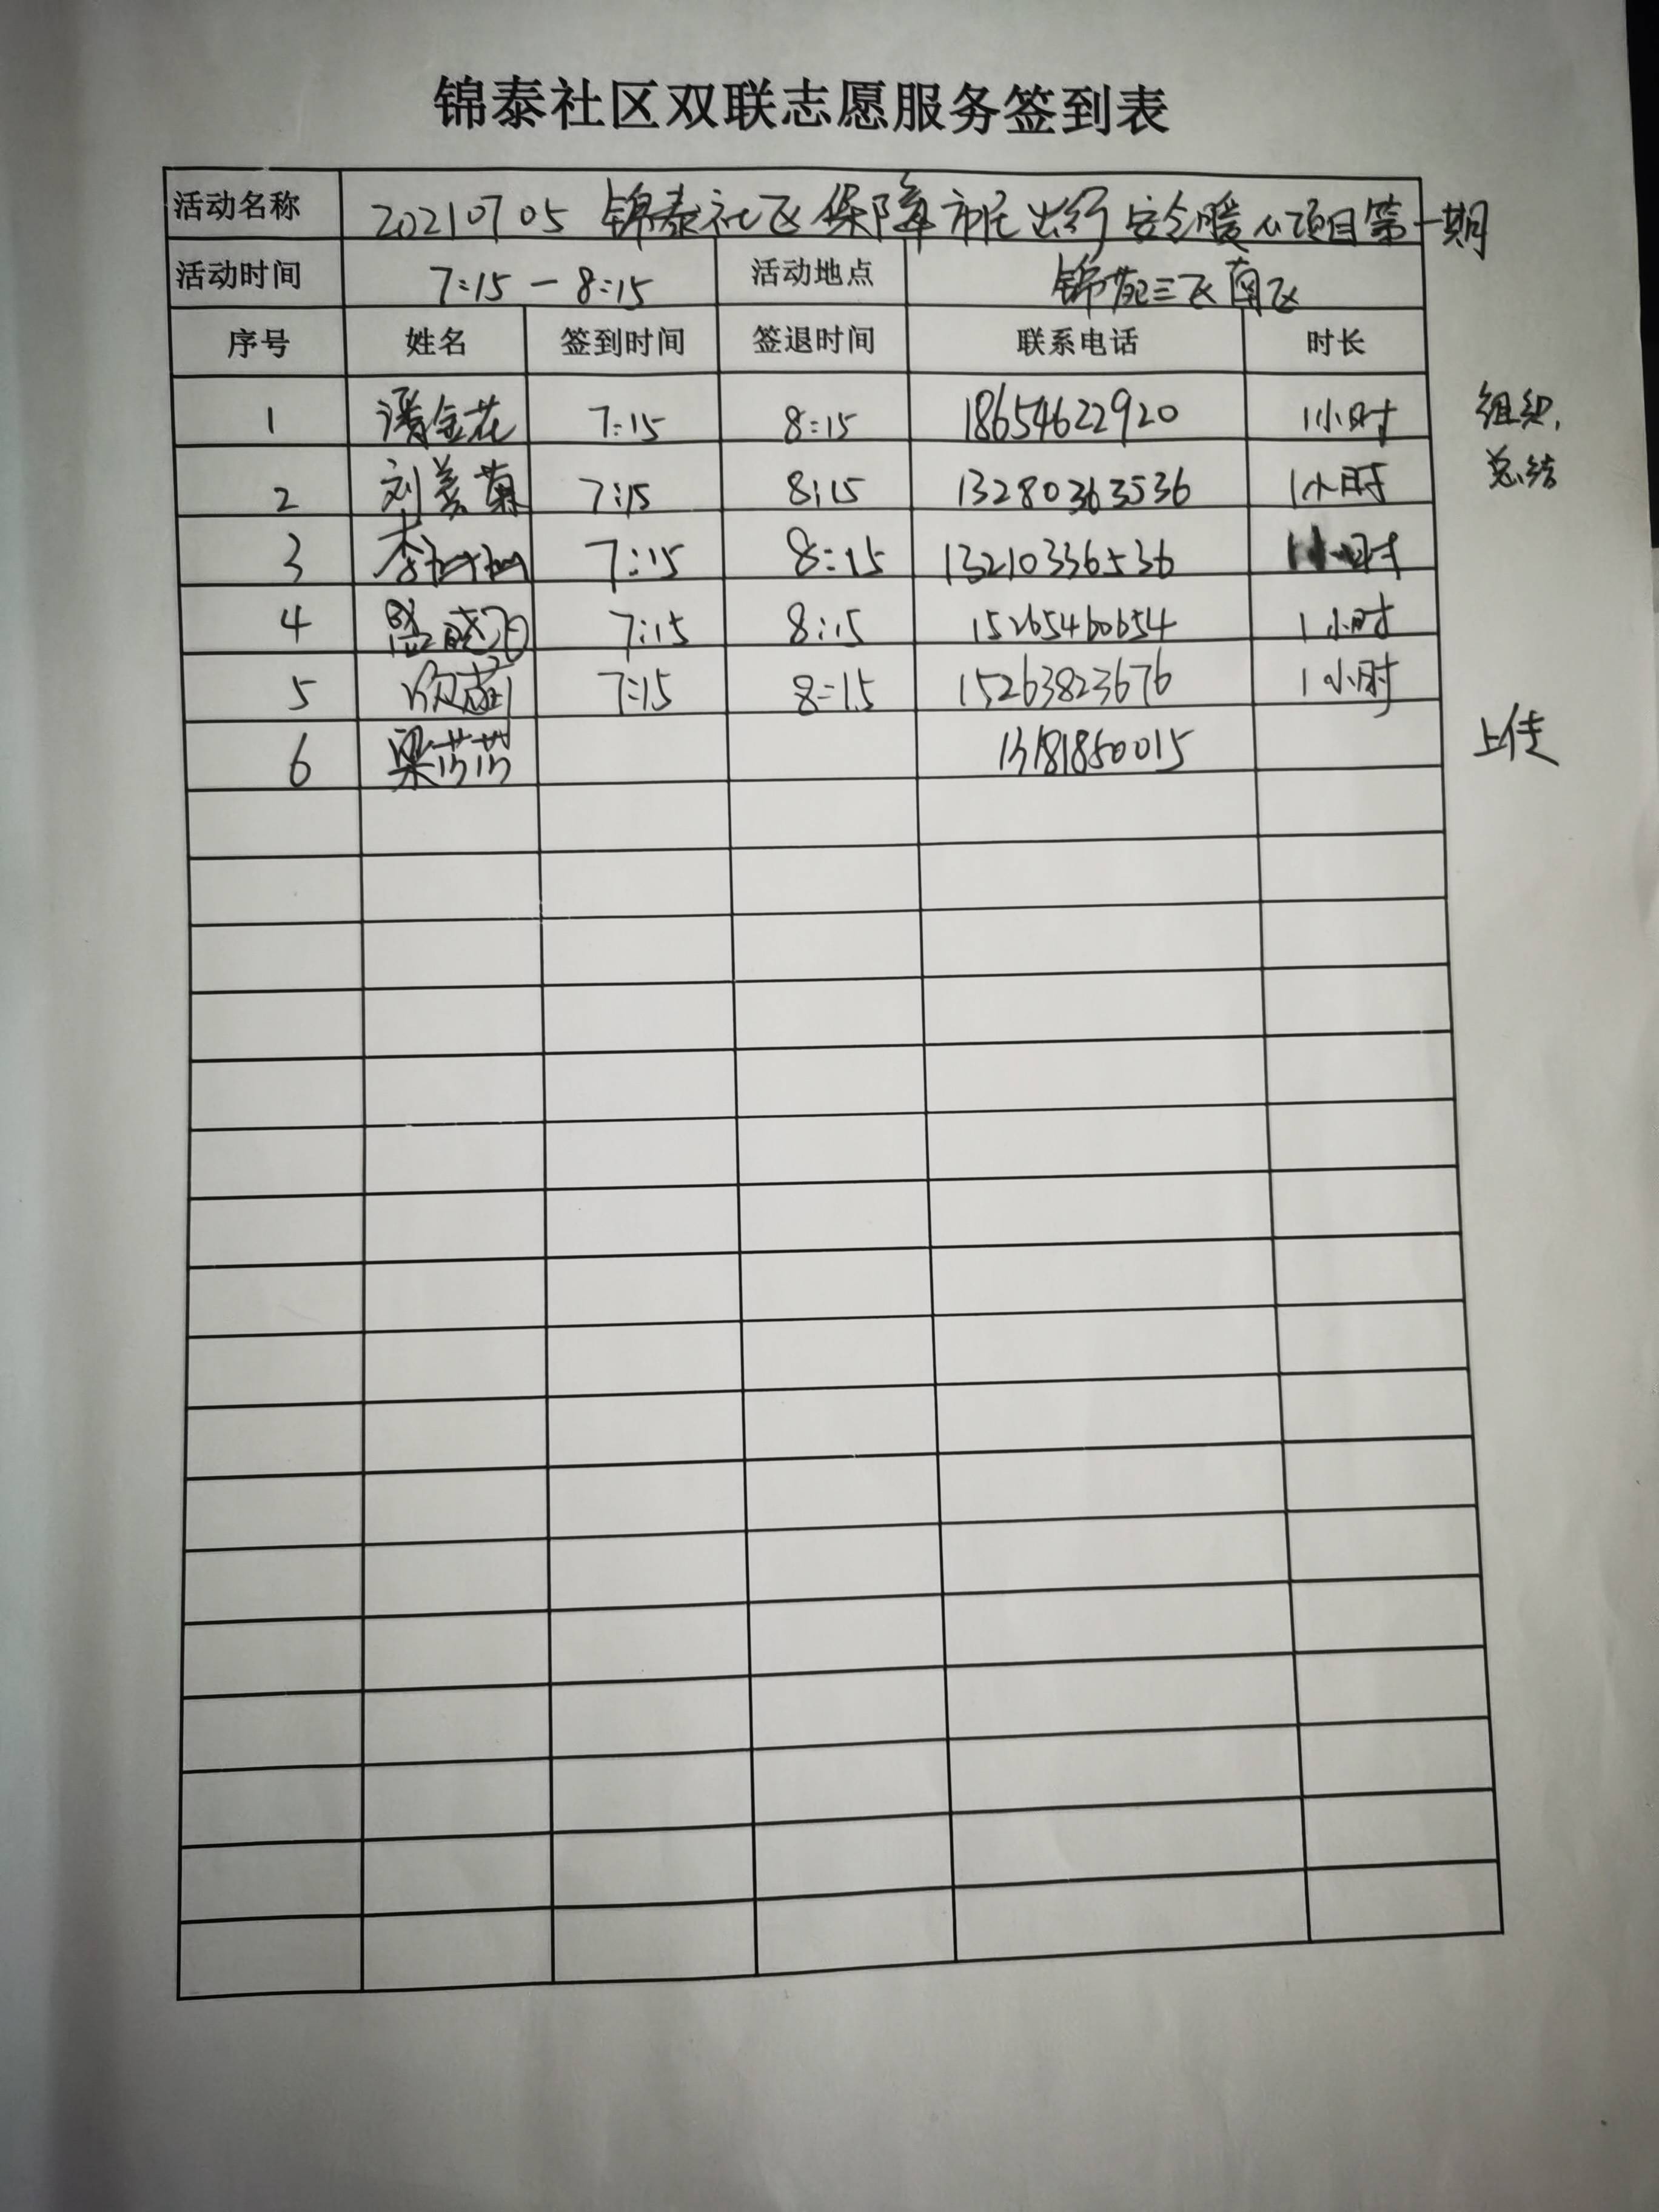 锦泰社区双联志愿服务签到表
活动名称 20210705 锦泰社区保障市民出行安全暖心项目第一期
活动时间 7:15-8:15 活动地点 锦苑三区南区
序号 姓名 签到时间 签退时间 联系电话 时长
1 潘金花 7:15 8:15 18654622920 1小时 组织,
2 刘美菊 7:15 8:15 13280363536 1小时 总结
3 李珊珊 7:15 8:15 13210336536 1小时
4 盛晓 7:15 8:15 15265460654 1小时
5 7:15 8:15 15263823676 1小时
6 梁茼茼 13181850015 上传